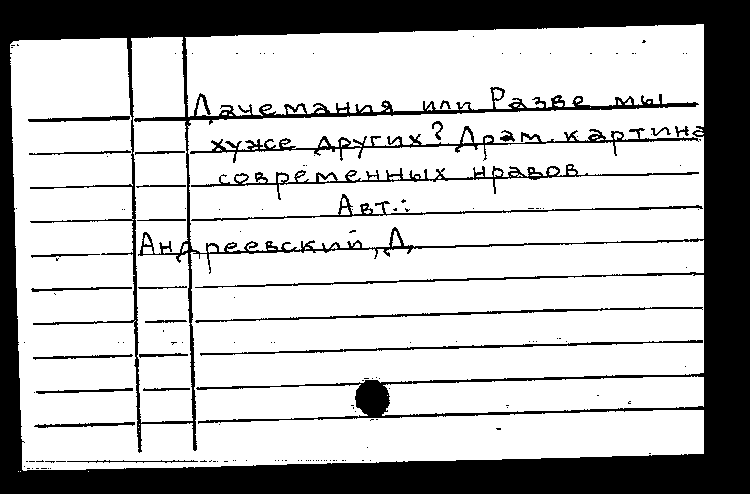 Дачемания или Разве мы
хуже других? Драм. картина
современных нравов.
Авт.:
Андреевский, Д.